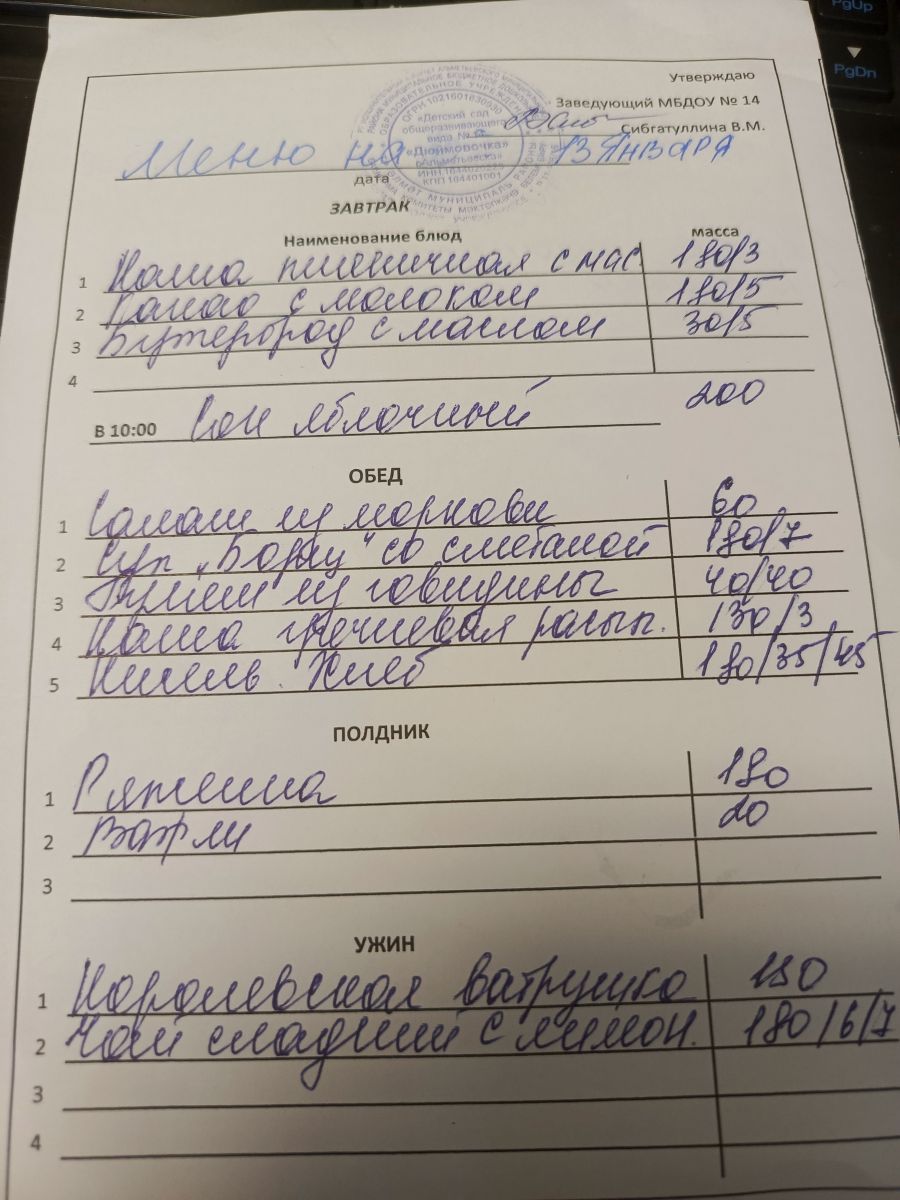 PgUp
PgDn
Утверждаю
Заведующий МБДОУ № 14
Сибгатуллина В.М.
ОГРН 1021601630630
«Детский сад
общеразвивающего
вида №
«Дюймовочка»
г.Альметьевска»
КПП 164401001
Меню на 13 января
дата
ЗАВТРАК
Наименование блюд масса
1 Каша пшеничная с мас. 180/3
2 Какао с молоком 180/5
3 Бутерброд с маслом 30/5
4
В 10:00 Сок яблочный 200
ОБЕД
1 Салат из моркови 60
2 Суп „Борщ“ со сметаной 180/7
3 Гуляш из говядины 40/40
4 Каша гречневая рассып. 130/3
5 Кисель. Хлеб 180/35/45
ПОЛДНИК
1 Ряженка 180
2 Вафли 20
3
УЖИН
1 Королевская ватрушка 150
2 Чай сладкий с лимон. 180/6/7
3
4